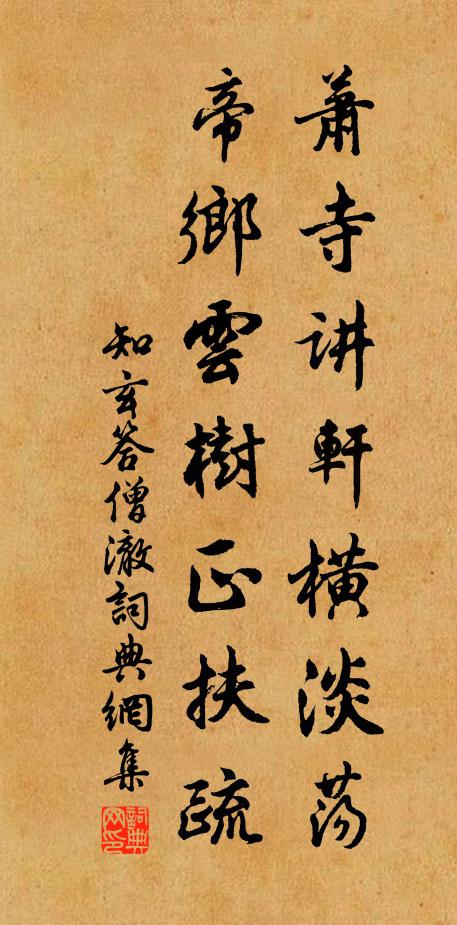 蕭寺讲軒橫淡荡
帝鄉雲樹正扶疏
知玄答僧澈詞典網集
詞典网印